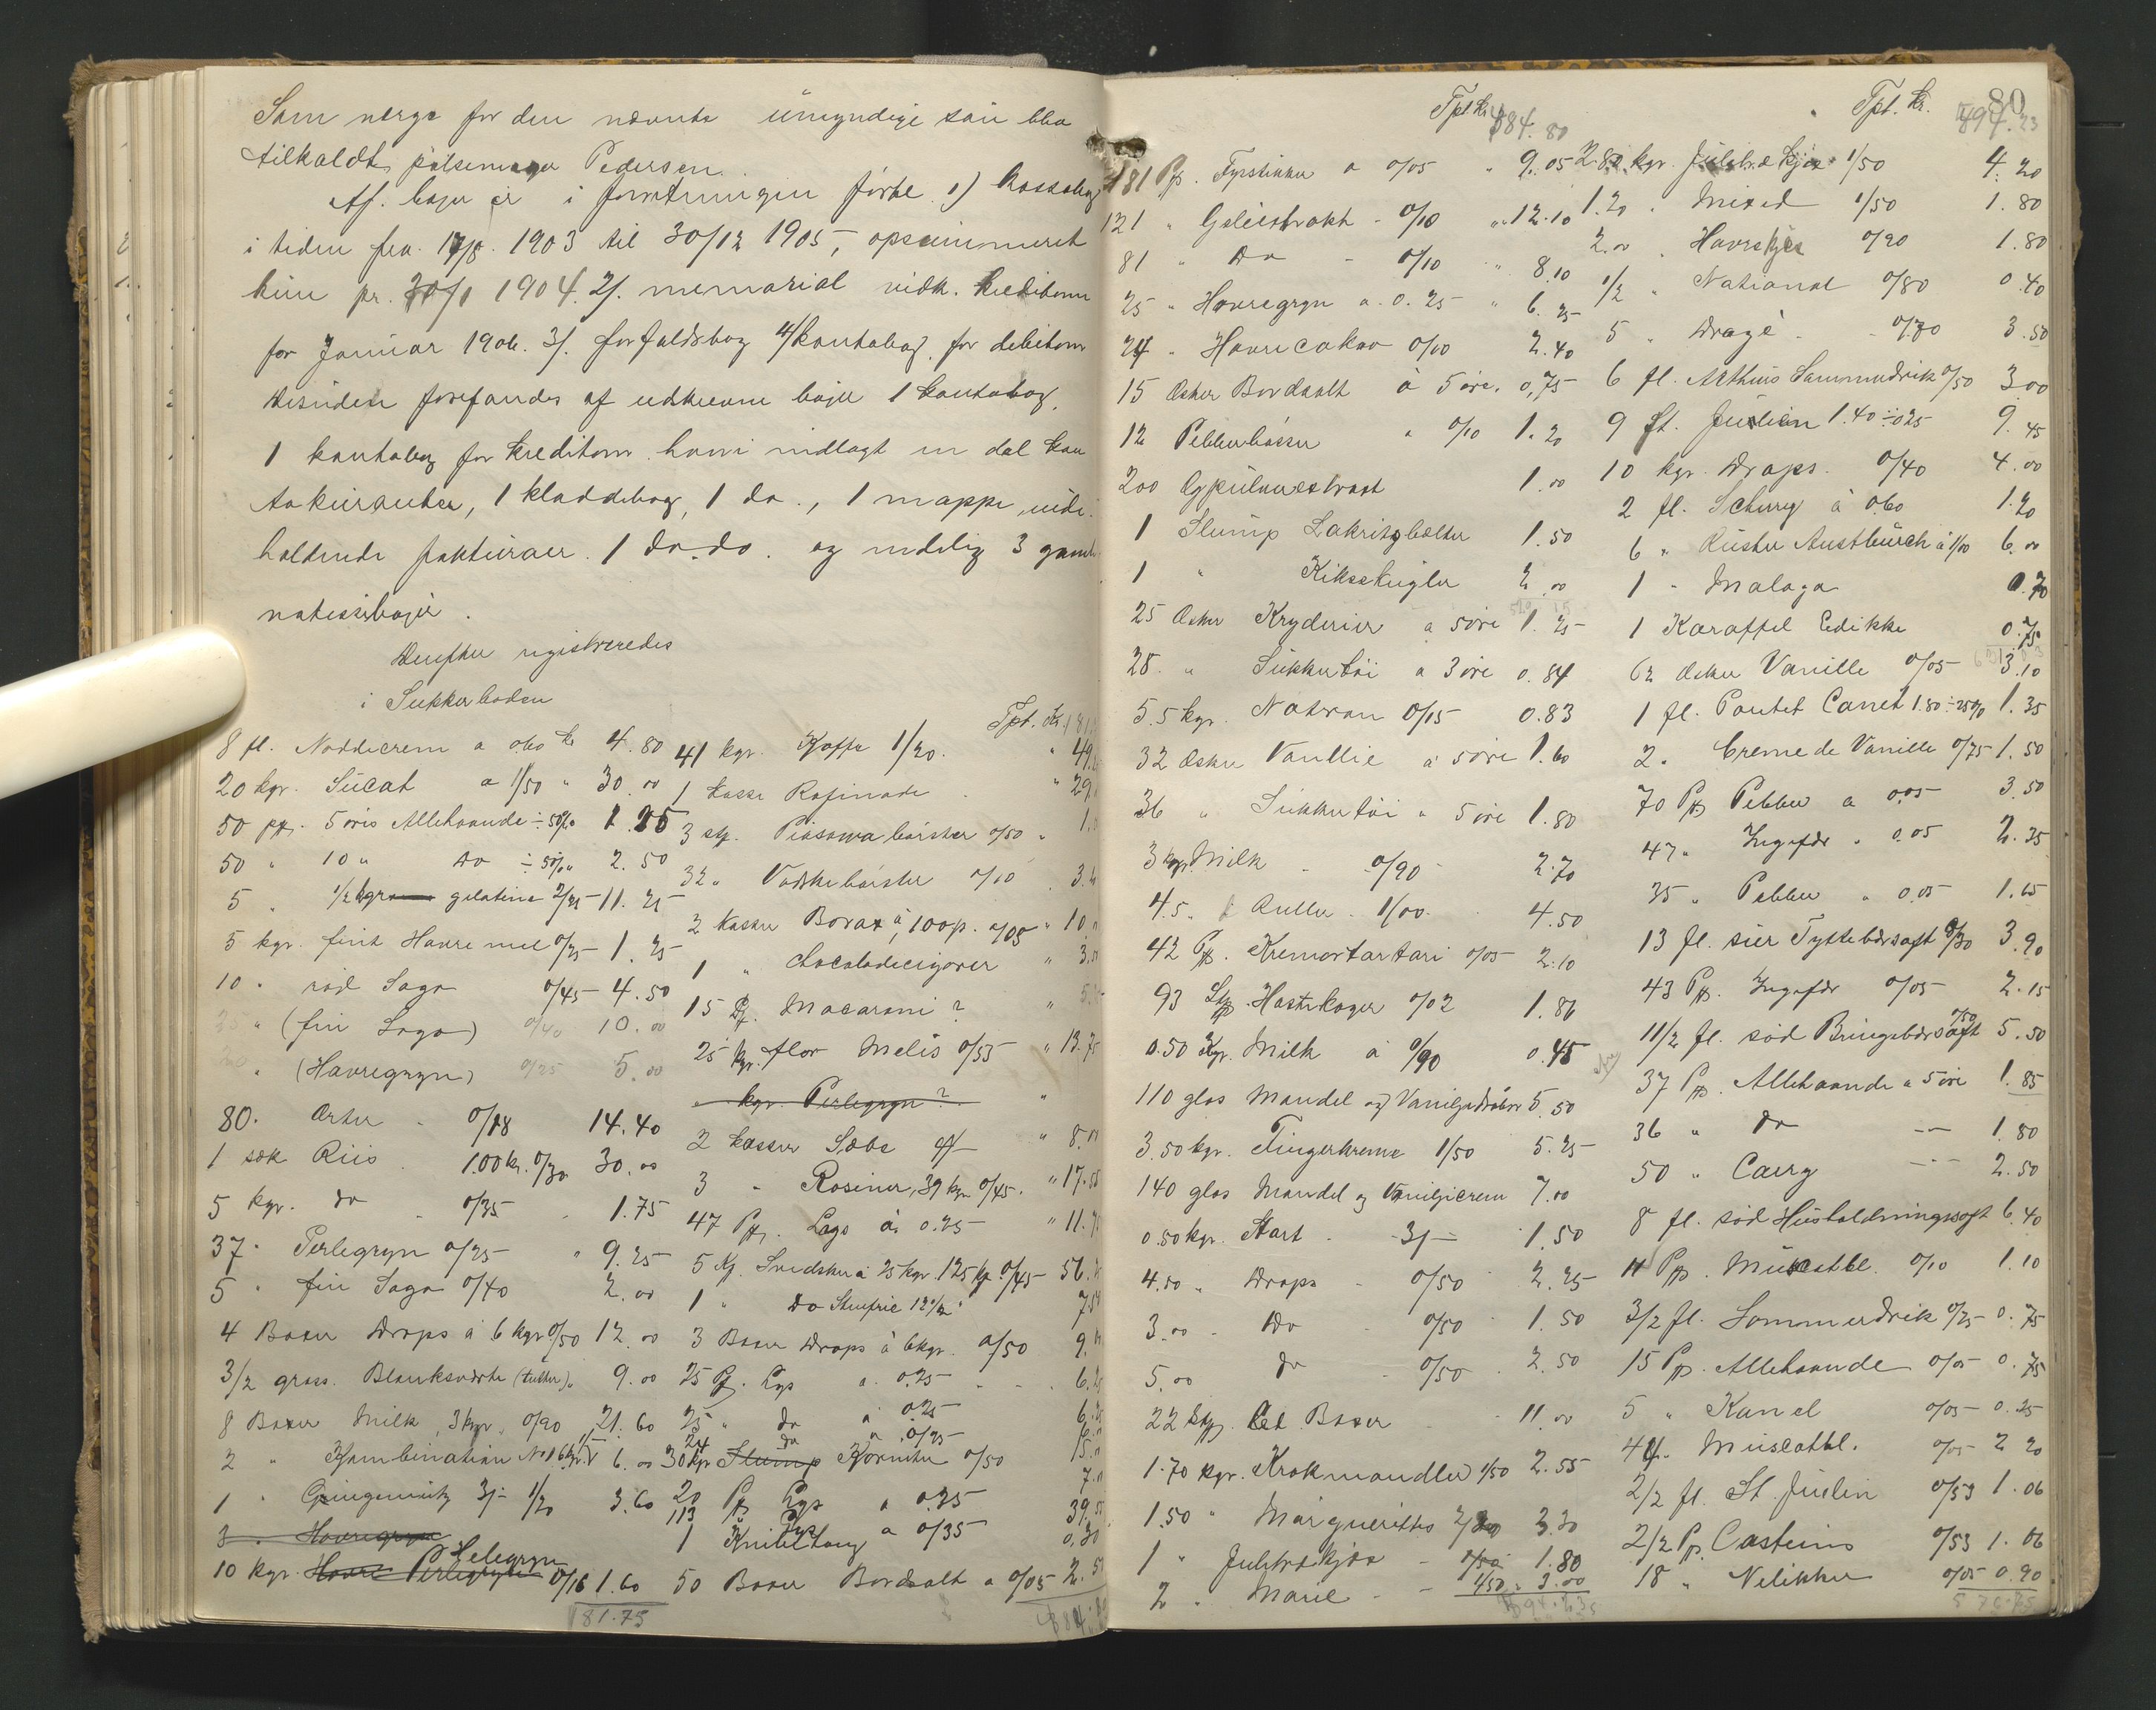 Som værge for den nævnte umyndige søn blev
tilkaldt pølsemager Pedersen.
Af bøger er i forretningen ført 1) Kassabog
i tiden fra 17/8 1903 til 30/12 1905, opsummeret
kun pr. 1904. 2/. memorial vedk. kreditorer
for Januar 1906. 3/. forfaldsbog 4/ kontobog for debitorer
desuden forefandes af udskrevne bøger 1 kontobog,
1 kontobog for kreditorer hvori indlagt en del kon
tokuranter, 1 kladdebog, 1 do., 1 mappe inde-
holdende fakturaer. 1 do. do. og endelig 3 gamle
notesbøger.
Derefter registreredes
i Sukkerboden
8 fl. Noddecrem a 0.60 kr 4.80
20 kgr. Sucat a 1/50 " 30.00
50 pk. 5 øris Allehaande ÷ 50% 1.25
50 " 10 " Do ÷ 50% 2.50
5 " 1/2 kgr gelatine 2/25 11.25
5 kgr. fint Havremel 0/25 1.25
10 " rød Sago 0/45 4.50
25 " (fin Sago) 0/40 10.00
20 " (Havregryn) 0/25 5.00
80 " Erter 0/18 14.40
1 sæk Riis 100 kr. 0/30 30.00
5 kgr. do 0/35 1.75
37 " Perlegryn 0/25 " 9.25
5 " fin Sago 0/40 2.00
4 Boxer Drops á 6 kgr 0/50 12.00
3/2 gross. Blanksværte (tuber) " 9.00
8 Boxer Milk, 3 kgr, 0/90 21.60
2 " Kombination No 1 6 kgr. 6.00
1 " Gingernuts 3/- 1/20 3.60
3 " Havregryn
10 kgr. Havre Perlegryn Helegryn 0/16 1.60
181.75
Tpt. Kr. 181.
41 kgr. Kaffe 1/20. " 49.
1 kasse Rafinade " 29.
3 stk. Piasava børster 0/50 " 1.
32 " Vaskebørster 0/10 3.
2 kasser Borax á 100 p. 0/05 " 10.
1 " Chocoladecigarer " 3.
15 Pk. Macaroni ? " 5.
25 kgr. flor Melis 0/55 " 13.75
kgr. Perlegryn ? "
2 kasser Sæbe 4/- " 8.00
3 " Rosiner, 39 kgr 0/45. " 17.55
47 Pk. Lys á 0.25 " 11.75
5 Ks. Svedsker á 25 kgr. 125 kgr. 0/45 56.
1 " Do Stenfrie 12 1/2 7.50
3 Boxer Drops á 6 kgr. 0/50 9.
25 Pk. Lys a 0.25 6.25
25 " do a 0.25 6.
24 do a 0/25 6.
30 kgr Slump Korinter 0/50 15.
20 Pk Lys a 0.35 7.
113 Pk Lys a 0/35 39.55
1 Knibtang 0.30
50 Boxer Bordsalt a 0/05 2.50
Tpt kr 384.80
181 Pk. Fyrstikker a 0/05 " 9.05
121 " Geleextrakt - 0/10 " 12.10
81 " Do - 0/10 " 8.10
25 " Havregryn a. 0.25 " 6.25
24 " Havrecakao 0/10 2.40
15 Æsker Bordsalt á 5 øre. 0,75
12 Pebberbøsser " 0/10 1.20
200 1.00
1 Slump Lakritzbælter 1.50
1 " Kikskugler 2.00
25 Æsker Kryderier a 5 øre 1.25
28 " Sukkertøi a 3 øre 0.84
5.5 kgr. Natron 0/15 0.83
32 Æsker Vanllie á 5 øre 1.60
36 " Sukkertøi " 5 øre 1.80
3 kgr. Milk - 0/90 2.70
4.5 " 1/00. 4.50
42 Pk. Kremortartari 0/05 2.10
93 Stk. Hostekager 0/02 1.86
0.50 Kgr. Milk á 0/90 0.45
110 glas Mandel og Vaniljedråber 5.50
3.50 kgr. Fingerkrems 1/50 5.25
140 glas Mandel og Vaniljicrem 7.00
0.50 kgr. Start - 3/- 1.50
4.50 " Drops - 0/50 2.25
3.00 " Do - 0/50 1.50
5.00 do - 0/50 2.50
22 Stk. Let. Boxer 11.00
1.70 kgr. Krokmandler 1/50 2.55
1.50 " Margueritter 2/20 3.30
1 " Julebrødkjæx 1.80
2 " Marie 1/50 " 3.00
Tpt. Kr. 80
494.23
2.80 kgr. Julebrødkjæx 1/50 4.20
1.20 " Mixed 1/50 1.80
2.00 " Havrekjæx 0/90 1.80
1/2 " National 0/80 0.40
5 " Dragé - 0/70 3.50
6 fl. Arthurs Sommerdrik 0/50 3.00
9 fl. Julien 1.40 ÷ 025 9.45
10 kgr. Drops. 0/40 4.00
2 fl. Scherry á 0.60 1.20
6 " Ruster Austbruch á 1/00 6.00
1 " Malaga 0.70
1 Karaffel Eedikke 0.75
62 Æsker Vanille 0/05 3.10
1 fl. Pontet Canet 1.80 ÷ 25% 1.35
2 " Creme de Vanille 0/75 1.50
70 Pk Pebber a 0.05 3.50
47 " Ingefær " 0.05 2.35
35 " Pebber " 0.05
13 fl. sur Tyttebærsaft 0/30 3.90
43 Pk. Ingefær 0/05 2.15
11/2 fl. sød Bringebærsaft 0/50 5.50
37 Pk. Allehaande a 5 øre 1.85
36 " Do --- 1.80
50 " Carry --- 2.50
8 fl. sød Husholdningssaft 6.40
11 Pk. Muscatbl. 0/10 1.10
3/2 fl. Sommerdrik 0/25 0.75
15 Pk. Allehaande 0/05 0.75
5 " Kanel 0/05 0.25
44 " Muscatbl. 0/05 2.20
2/2 fl. St. Julin 0/53 1.06
2/2 Pk. Casteins 0/53 1.06
18 " Nelikker 0/05 0.90